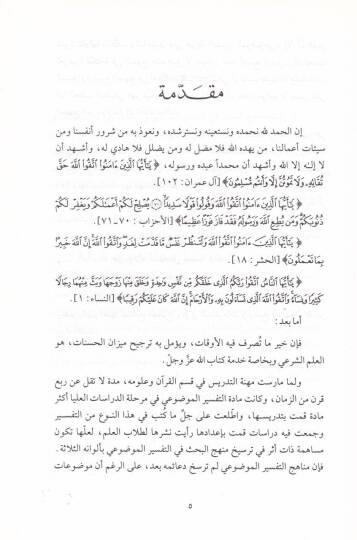 مقدّمة
إن الحمد لله نحمده ونستعينه ونسترشده، ونعوذ به من شرور أنفسنا ومن
سيئات أعمالنا، من يهده الله فلا مضل له ومن يضلل فلا هادي له، وأشهد أن
لا إله إلا الله وأشهد أن محمداً عبده ورسوله، ﴿يَٰٓأَيُّهَا ٱلَّذِينَ ءَامَنُوا۟ ٱتَّقُوا۟ ٱللَّهَ حَقَّ
تُقَاتِهِۦ وَلَا تَمُوتُنَّ إِلَّا وَأَنتُم مُّسْلِمُونَ﴾ [آل عمران: ١٠٢].
﴿يَٰٓأَيُّهَا ٱلَّذِينَ ءَامَنُوا۟ ٱتَّقُوا۟ ٱللَّهَ وَقُولُوا۟ قَوْلًا سَدِيدًا ۝ يُصْلِحْ لَكُمْ أَعْمَٰلَكُمْ وَيَغْفِرْ لَكُمْ
ذُنُوبَكُمْ وَمَن يُطِعِ ٱللَّهَ وَرَسُولَهُۥ فَقَدْ فَازَ فَوْزًا عَظِيمًا﴾ [الأحزاب: ٧٠ - ٧١].
﴿يَٰٓأَيُّهَا ٱلَّذِينَ ءَامَنُوا۟ ٱتَّقُوا۟ ٱللَّهَ وَلْتَنظُرْ نَفْسٌ مَّا قَدَّمَتْ لِغَدٍ وَٱتَّقُوا۟ ٱللَّهَ إِنَّ ٱللَّهَ خَبِيرٌۢ
بِمَا تَعْمَلُونَ﴾ [الحشر: ١٨].
﴿يَٰٓأَيُّهَا ٱلنَّاسُ ٱتَّقُوا۟ رَبَّكُمُ ٱلَّذِى خَلَقَكُم مِّن نَّفْسٍ وَٰحِدَةٍ وَخَلَقَ مِنْهَا زَوْجَهَا وَبَثَّ مِنْهُمَا رِجَالًا
كَثِيرًا وَنِسَآءً وَٱتَّقُوا۟ ٱللَّهَ ٱلَّذِى تَسَآءَلُونَ بِهِۦ وَٱلْأَرْحَامَ إِنَّ ٱللَّهَ كَانَ عَلَيْكُمْ رَقِيبًا﴾ [النساء: ١].
أما بعد:
فإن خير ما تُصرف فيه الأوقات، ويؤمل به ترجيح ميزان الحسنات، هو
العلم الشرعي وبخاصة خدمة كتاب الله عزّ وجلّ.
ولما مارست مهنة التدريس في قسم القرآن وعلومه، مدة لا تقل عن ربع
قرن من الزمان، وكانت مادة التفسير الموضوعي في مرحلة الدراسات العليا أكثر
مادة قمت بتدريسها، واطلعت على جلّ ما كُتب في هذا النوع من التفسير
وجمعت فيه دراسات قمت بإعدادها رأيت نشرها لطلاب العلم، لعلّها تكون
مساهمة ذات أثر في ترسيخ منهج البحث في التفسير الموضوعي بألوانه الثلاثة.
فإن مناهج التفسير الموضوعي لم ترسخ دعائمه بعد، على الرغم أن موضوعات
٥